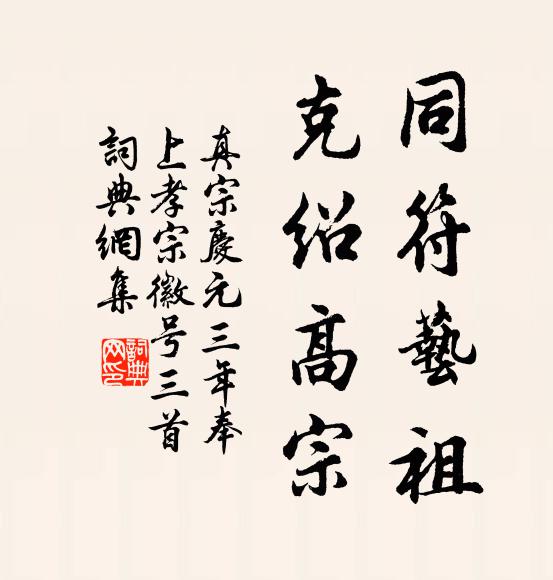 同符藝祖
克紹高宗
真宗慶元三年奉
上孝宗徽号三首
詞典網集
詞典网印